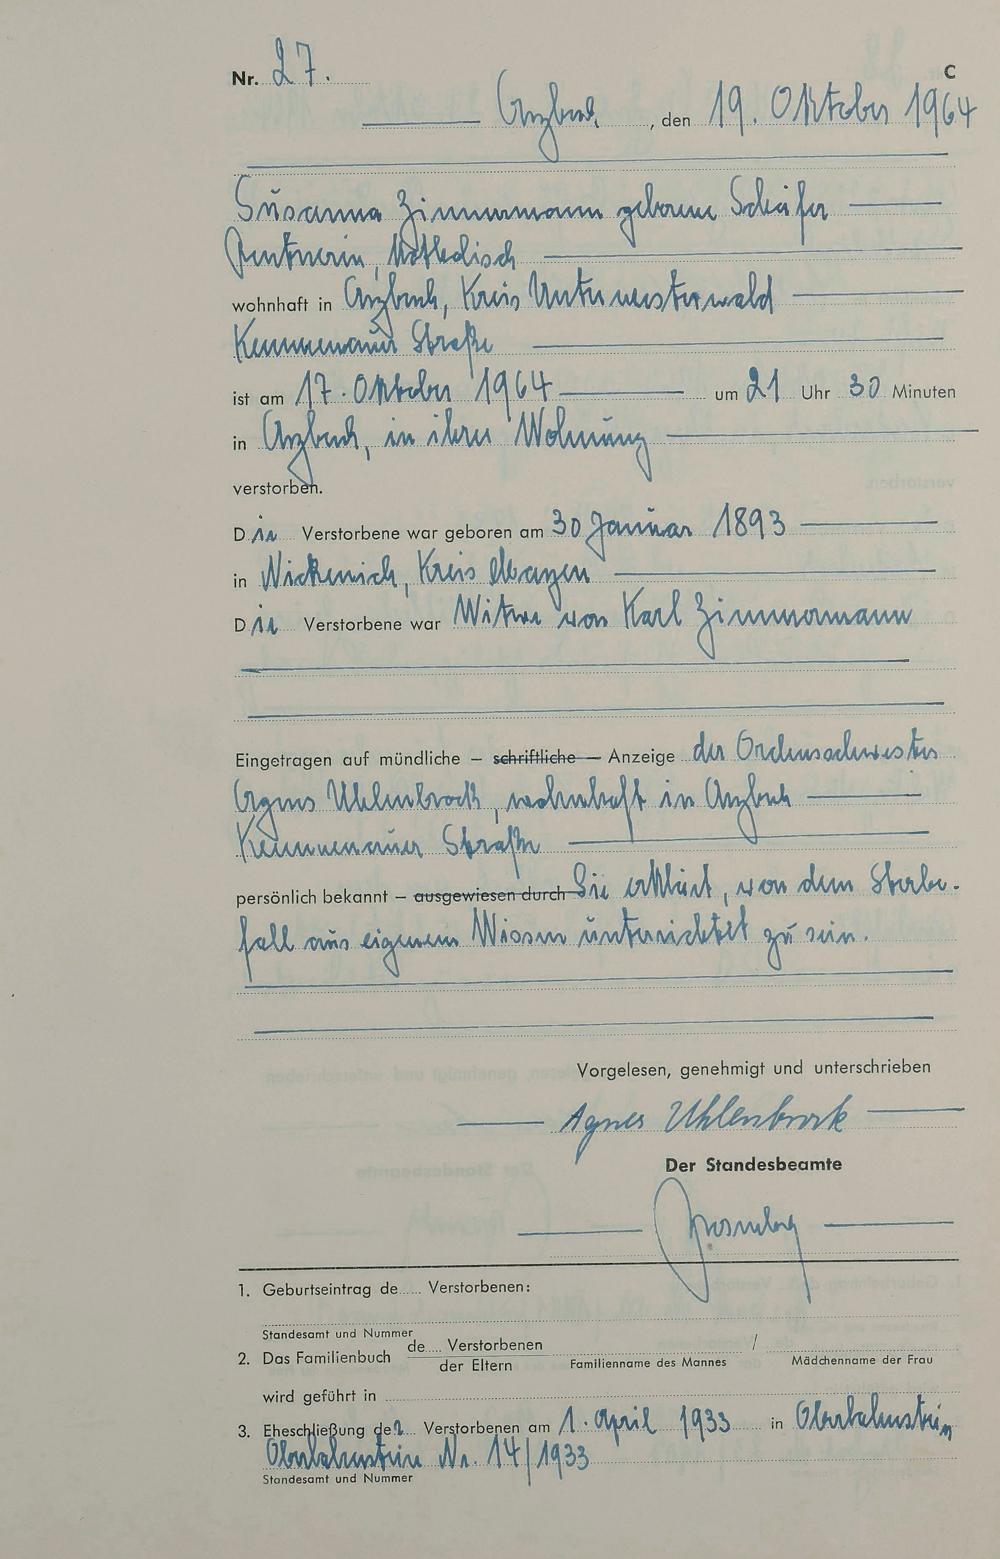 Nr. 27.
C
Arzbach, den 19. Oktober 1964
Susanna Zimmermann geborene Schäfer
Rentnerin, katholisch
wohnhaft in Arzbach, Kreis Unterwesterwald
Kemmenauer Straße
ist am 17. Oktober 1964 um 21 Uhr 30 Minuten
in Arzbach, in ihrer Wohnung
verstorben.
Die Verstorbene war geboren am 30 Januar 1893
in Nickenich, Kreis Mayen
Die Verstorbene war Witwe von Karl Zimmermann
Eingetragen auf mündliche – schriftliche – Anzeige der Ordensschwester
Agnes Uhlenbrock, wohnhaft in Arzbach
Kemmenauer Straße
persönlich bekannt – ausgewiesen durch Sie erklärt, von dem Sterbe-
fall aus eigenem Wissen unterrichtet zu sein.
Vorgelesen, genehmigt und unterschrieben
Agnes Uhlenbrock
Der Standesbeamte
1. Geburtseintrag de..... Verstorbenen:
Standesamt und Nummer
2. Das Familienbuch de.... Verstorbenen /
der Eltern Familienname des Mannes Mädchenname der Frau
wird geführt in
3. Eheschließung der Verstorbenen am 1. April 1933 in Oberlahnstein
Oberlahnstein Nr. 14/1933
Standesamt und Nummer